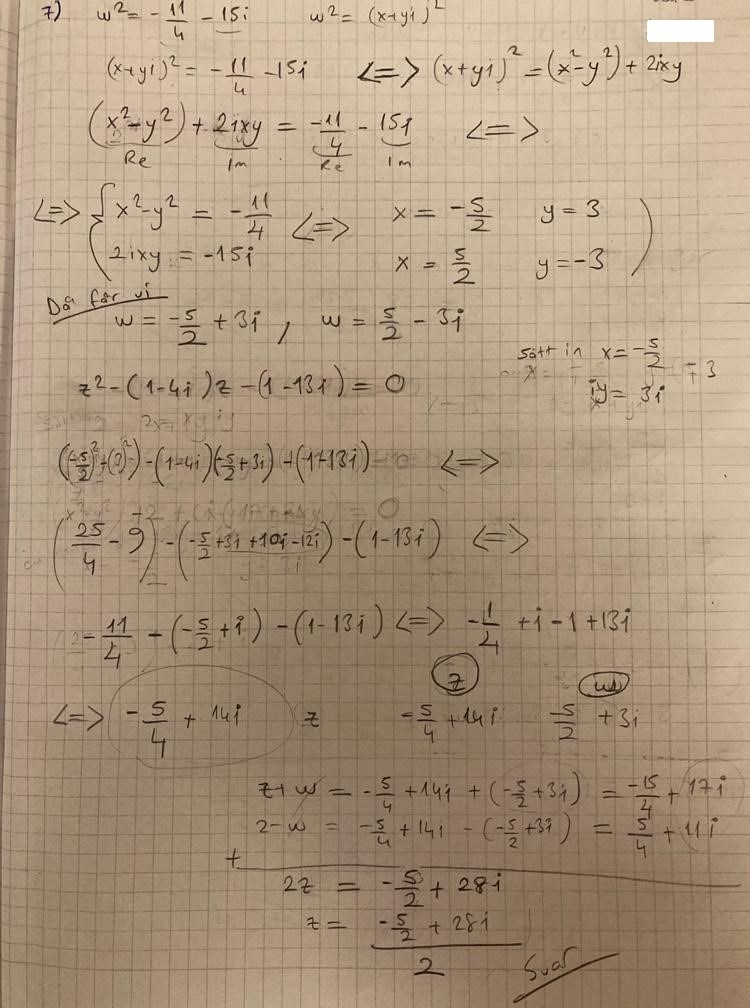 7) w² = -11/4 - 15i w² = (x+yi)²
(x+yi)² = -11/4 - 15i <=> (x+yi)² = (x²-y²) + 2ixy
(x²-y²) + 2ixy = -11/4 - 15i <=>
Re Im Re Im
<=> { x²-y² = -11/4 <=> x = -5/2 y = 3
2ixy = -15i x = 5/2 y = -3 )
Då får vi
w = -5/2 + 3i , w = 5/2 - 3i
sätt in x = -5/2
z² - (1-4i)z - (1-13i) = 0
iy = 3i
((-5/2)²+(3)²) - (1-4i)(-5/2+3i) + (1+13i) <=>
(25/4 - 9) - (-5/2+3i+10i-12i) - (1-13i) <=>
= 11/4 - (-5/2+i) - (1-13i) <=> -1/4 + i - 1 + 13i
z w
<=> -5/4 + 14i z -5/4 + 14i -5/2 + 3i
z+w = -5/4 + 14i + (-5/2+3i) = -15/4 + 17i
z-w = -5/4 + 14i - (-5/2+3i) = 5/4 + 11i
+
2z = -5/2 + 28i
z = (-5/2 + 28i)/2
Svar